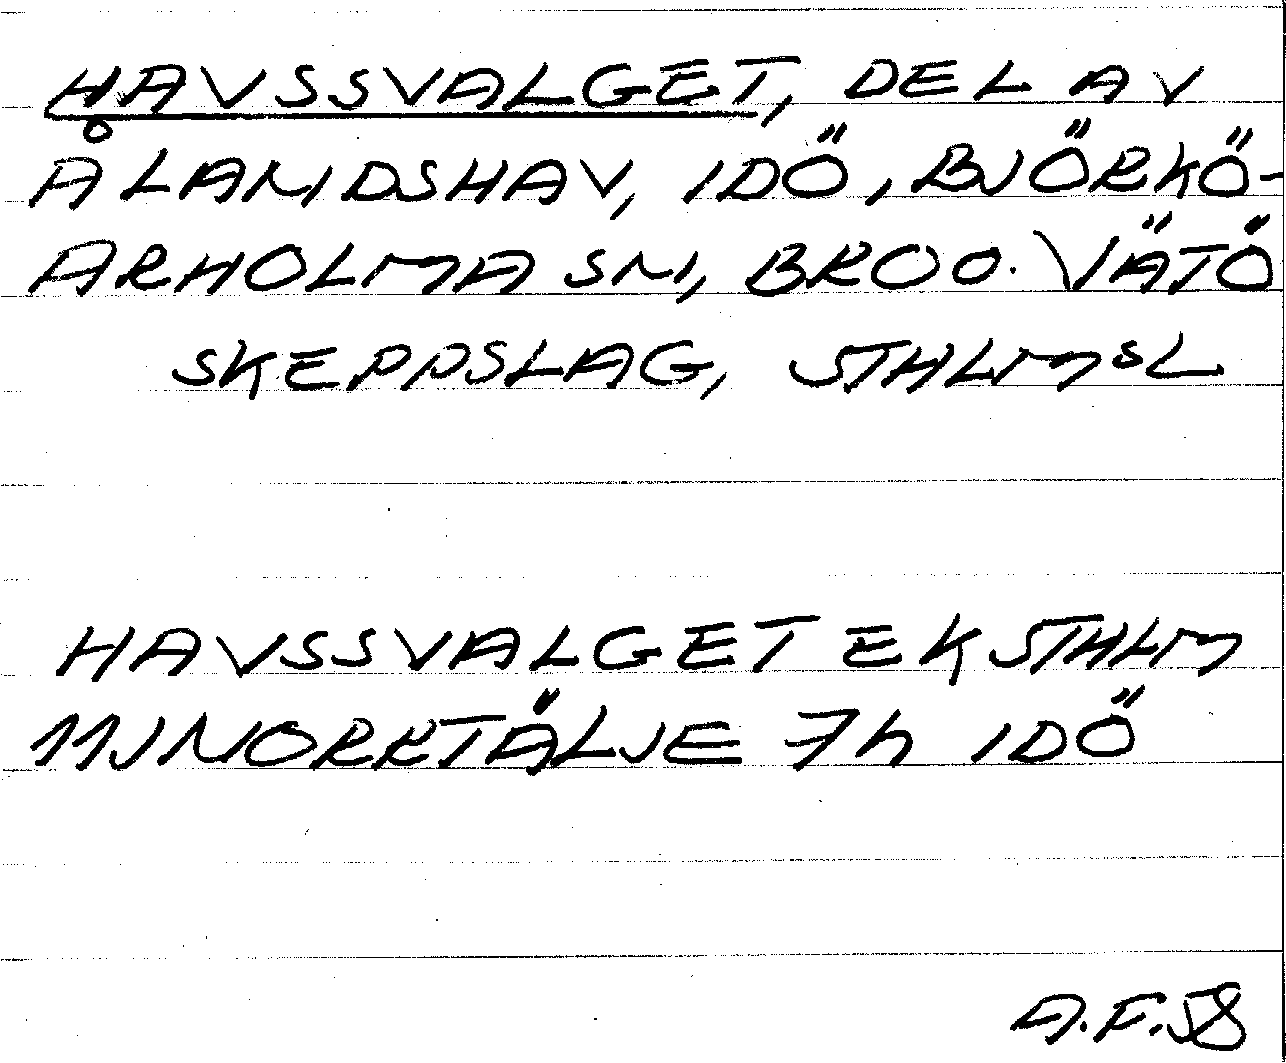 HAVSSVALGET, DEL AV
ÅLANDSHAV, IDÖ, BJÖRKÖ-
ARHOLMA SN, BRO O. VÄTÖ
SKEPPSLAG, STHLMSL
HAVSSVALGET EK STHLM
11J NORRTÄLJE 7h IDÖ
A.F.58